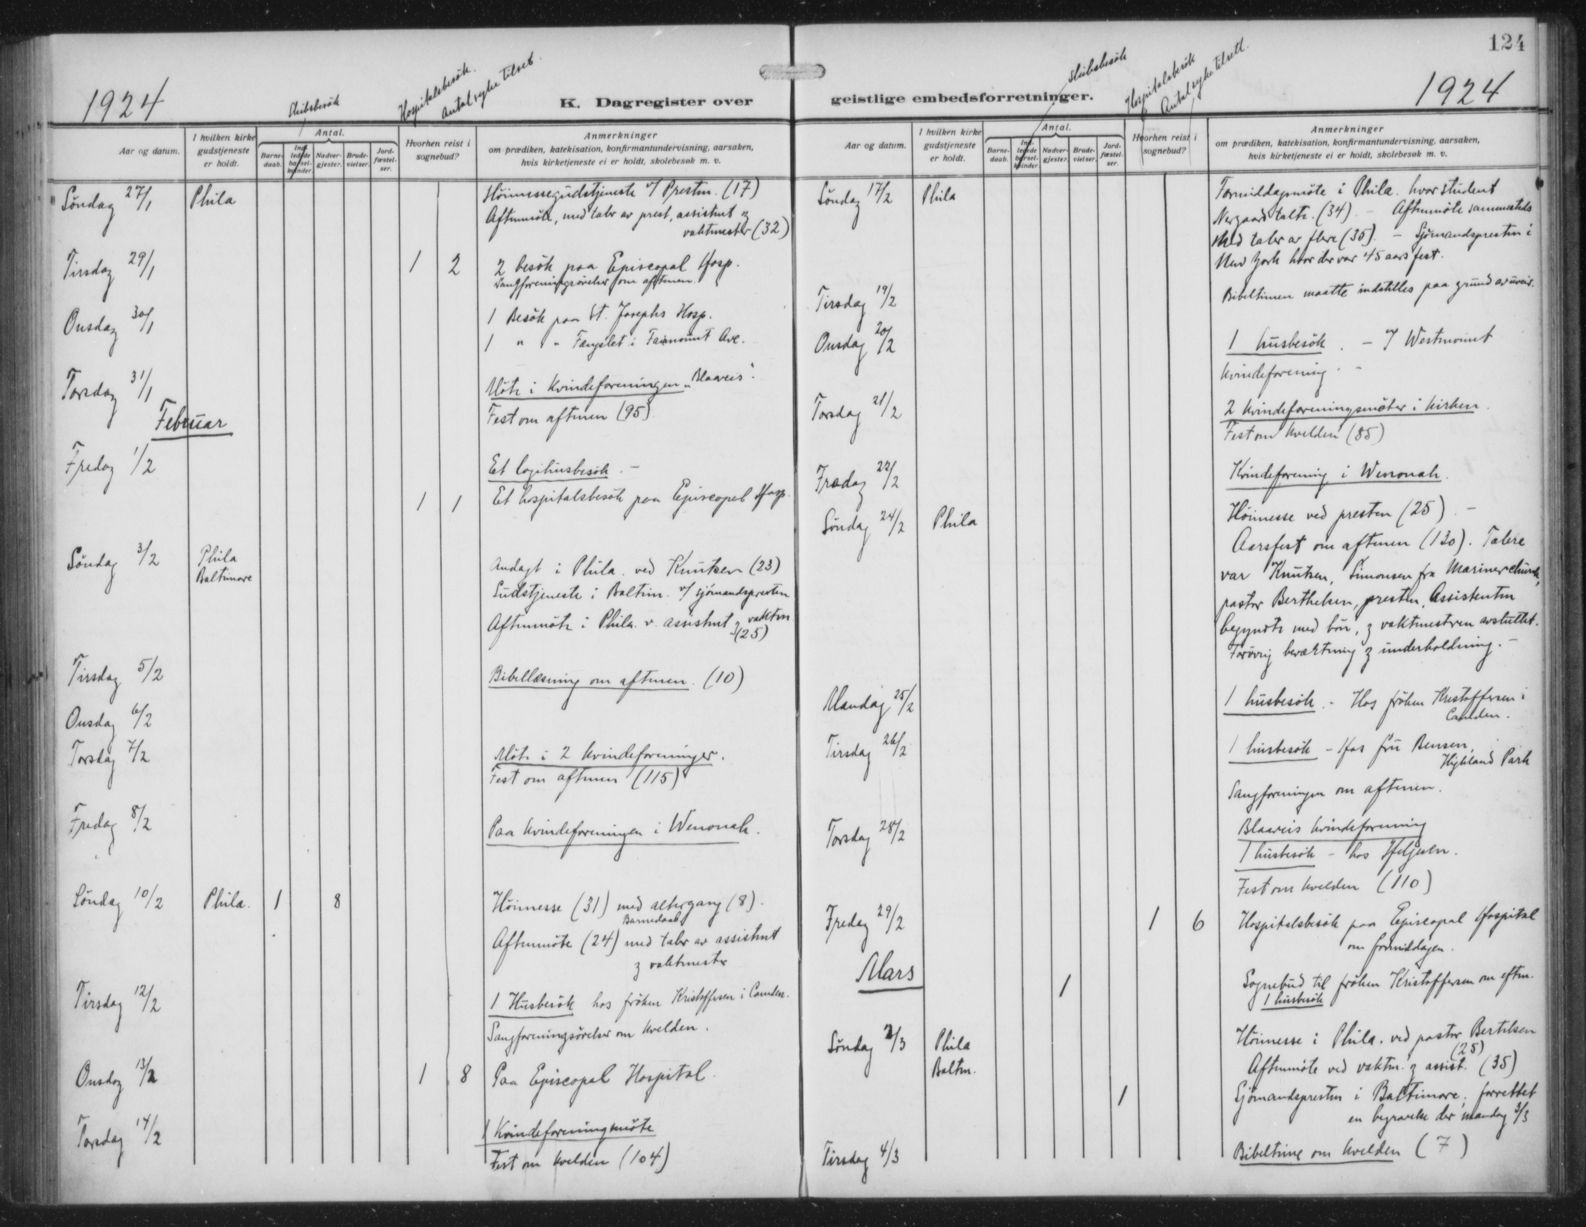 124
1924
Skibsbesök
Hospitalsbesök.
Antal syke tilset.
K. Dagregister over
Aar og datum.
I hvilken kirke gudstjeneste er holdt.
Antal.
Barnedaab.
Indledede barselkvinder.
Nadvergjester.
Brudevielser.
Jordfæstelser.
Hvorhen reist i sognebud?
Anmerkninger
om prædiken, katekisation, konfirmantundervisning, aarsaken,
hvis kirketjeneste ei er holdt, skolebesøk m. v.
Søndag 27/1 Phila Höimessegudstjeneste v/ Presten. (17)
Aftenmöte, med taler av prest, assistent og
vaktmester (32)
Tirsdag 29/1 1 2 2 besök paa Episcopal Hosp.
Sangforeningsövelse om aftenen.
Onsdag 30/1 1 Besök paa St. Josephs Hosp.
1 " " Fængslet i Fairmount Ave.
Torsdag 31/1 Möte i Kvindeforeningen „Blaaveis".
Fest om aftenen (95)
Februar
Fredag 1/2 Et logihusbesök. –
1 1 Et hospitalsbesök paa Episcopal Hosp.
Søndag 3/2 Phila Andagt i Phila. ved Knutsen (23)
Baltimore Gudstjeneste i Baltim. v/ sjömandspresten
Aftenmöte i Phila. v. assistent og vaktm
(25)
Tirsdag 5/2 Bibellæsning om aftenen. (10)
Onsdag 6/2
Torsdag 7/2 Möte i 2 kvindeforeninger.
Fest om aftenen (115)
Fredag 8/2 Paa kvindeforeningen i Wenonah.
Søndag 10/2 Phila. 1 8 Höimesse (31) med altergang (8).
Barnedaab
Aftenmöte (24) med taler av assistent
og vaktmester
Tirsdag 12/2 1 Husbesök hos fröken Kristoffersen i Camden.
Sangforeningsövelser om kvelden.
Onsdag 13/2 1 8 Paa Episcopal Hospital.
Torsdag 14/2 1 Kvindeforeningsmöte
Fest om kvelden (104)
Skibsbesök
Hospitalsbesök
Antal syke tilsett.
1924
geistlige embedsforretninger.
Aar og datum.
I hvilken kirke gudstjeneste er holdt.
Antal.
Barnedaab.
Indledede barselkvinder.
Nadvergjester.
Brudevielser.
Jordfæstelser.
Hvorhen reist i sognebud?
Anmerkninger
om prædiken, katekisation, konfirmantundervisning, aarsaken,
hvis kirketjeneste ei er holdt, skolebesøk m. v.
Søndag 17/2 Phila Formiddagsmöte i Phila. hvor student
Nergaard talte. (34). – Aftenmöte sammesteds
med taler av flere (35). – Sjömandspresten i
New York hvor der var 45 aars fest.
Tirsdag 19/2 Bibeltimen maatte indstilles paa grund av uveir.
Onsdag 20/2 1 husbesök. – v/ Westmont
kvindeforening. –
Torsdag 21/2 2 kvindeforeningsmöter i kirken.
Fest om kvelden (85)
Fredag 22/2 Kvindeforening i Wenonah.
Søndag 24/2 Phila Höimesse ved presten (25) –
Aarsfest om aftenen (130). Talere
var Knutsen, Simonsen fra Mariner church,
pastor Berthelsen, presten, Assistenten
begyndte med bön, og vaktmesteren avsluttet.
Forövrig beværtning og underholdning. –
Mandag 25/2 1 husbesök. – Hos fröken Kristoffersen i
Camden.
Tirsdag 26/2 1 husbesök – Hos fru Bensen,
Highland Park
Sangforeningen om aftenen.
Torsdag 28/2 Blaaveis kvindeforening
1 husbesök – hos Helgesen.
Fest om kvelden (110)
Fredag 29/2 1 6 Hospitalsbesök paa Episcopal Hospital
om formiddagen.
Mars 1 Sognebud til fröken Kristoffersen om eftm.
1 husbesök
Søndag 2/3 Phila Höimesse i Phila. ved pastor Bertelsen
(25)
Baltm. Aftenmöte ved vaktm. og assist. (35)
1 Sjömandspresten i Baltimore, forrettet
en begravelse der mandag 3/3
Tirsdag 4/3 Bibeltime om kvelden (7)